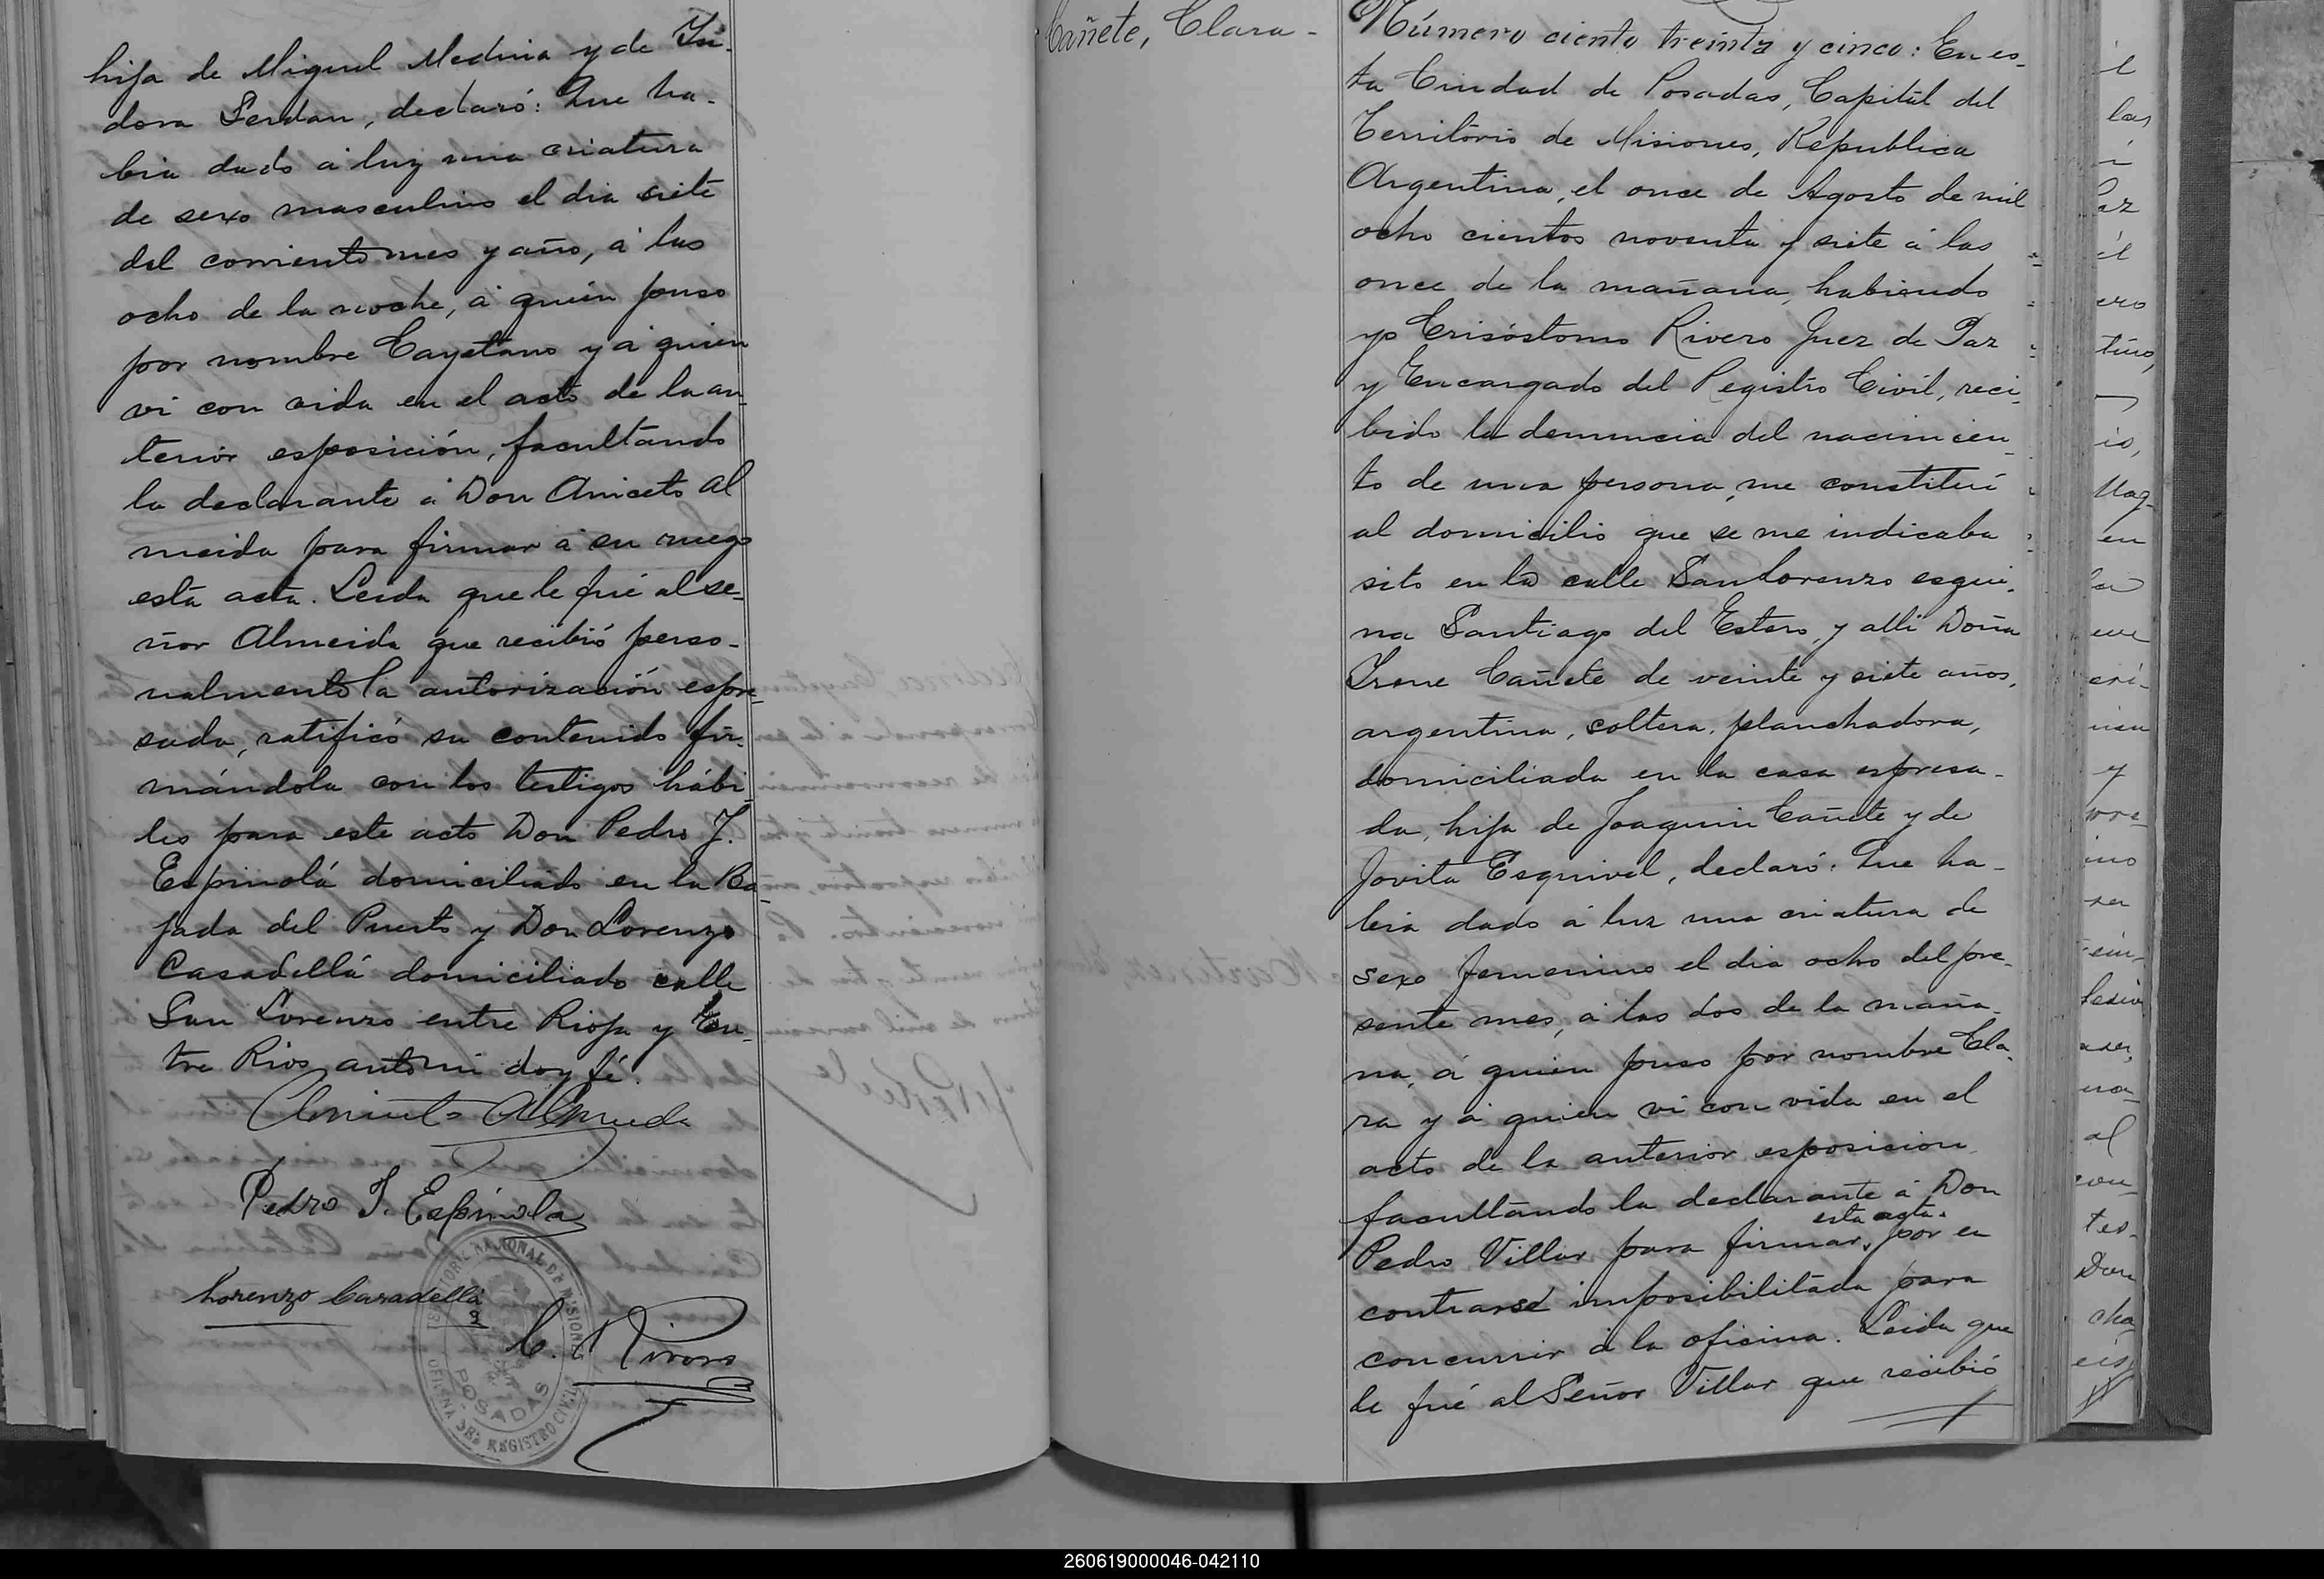 hija de Miguel Medina y de Isi-
dora Serdan, declaró: Que ha-
bia dado á luz una criatura
de sexo masculino el dia siete
del corriente mes y año, á las
ocho de la noche, á quien puso
por nombre Cayetano y á quien
vi con vida en el acto de la an-
terior esposición, facultando
la declarante á Don Aniceto Al
meida para firmar á su ruego
esta acta. Leida que le fué al se-
ñor Almeida que recibió perso-
nalmente la autorización espre-
sada, ratificó su contenido fir-
mándola con los testigos hábi-
les para este acto Don Pedro J.
Espinolá domiciliado en la Ba-
jada del Puerto y Don Lorenzo
Casadellá domiciliado calle
San Lorenzo entre Rioja y En-
tre Rios, ante mi doy fé.
Aniceto Almeida
Pedro J. Espínola
Lorenzo Casadellá
C. Rivero
TERRITORIO NACIONAL DE MISIONES
POSADAS
OFICINA DEL REGISTRO CIVIL
Cañete, Clara -
Número ciento treinta y cinco: En es-
ta Ciudad de Posadas, Capital del
Territorio de Misiones, Republica
Argentina, el once de Agosto de mil
ocho cientos noventa y siete á las
once de la mañana, habiendo
yo Crisóstomo Rivero Juez de Paz
y Encargado del Registro Civil, reci-
bido la denuncia del nacimien-
to de una persona, me constituí
al domicilio que se me indicaba
sito en la calle San Lorenzo esqui-
na Santiago del Estero, y alli Doña
Irene Cañete de veinte y siete años,
argentina, soltera, planchadora,
domiciliada en la casa espresa-
da, hija de Joaquin Cañete y de
Jovita Esquivel, declaró: Que ha-
bia dado á luz una criatura de
sexo femenino el dia ocho del pre-
sente mes, á las dos de la maña-
na, á quien puso por nombre Cla-
ra y á quien vi con vida en el
acto de la anterior esposicion
facultando la declarante á Don
esta acta.
Pedro Villar para firmar, por en
contrarse imposibilitada para
concurrir á la oficina. Leida que
le fué al Señor Villar que recibió
260619000046-042110